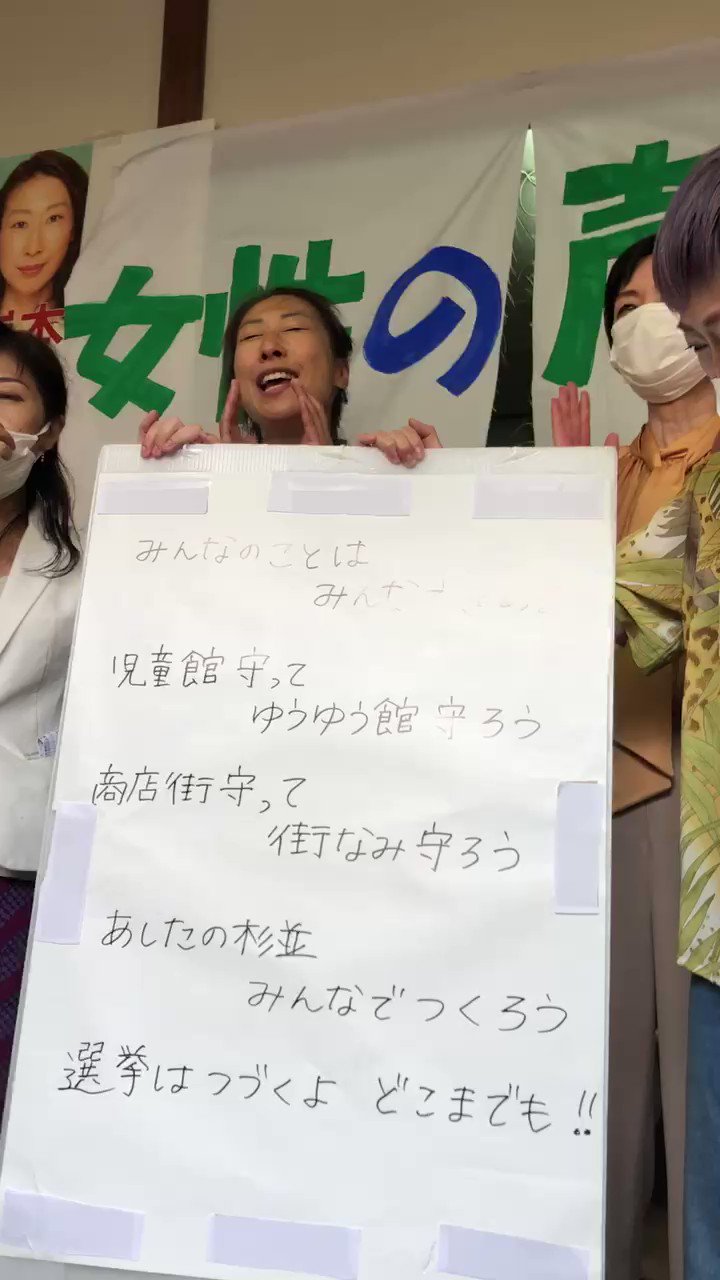 本
女性の声
みんなのことは
みんな
児童館守って
ゆうゆう館守ろう
商店街守って
街なみ守ろう
あしたの杉並
みんなでつくろう
選挙はつづくよ どこまでも!!